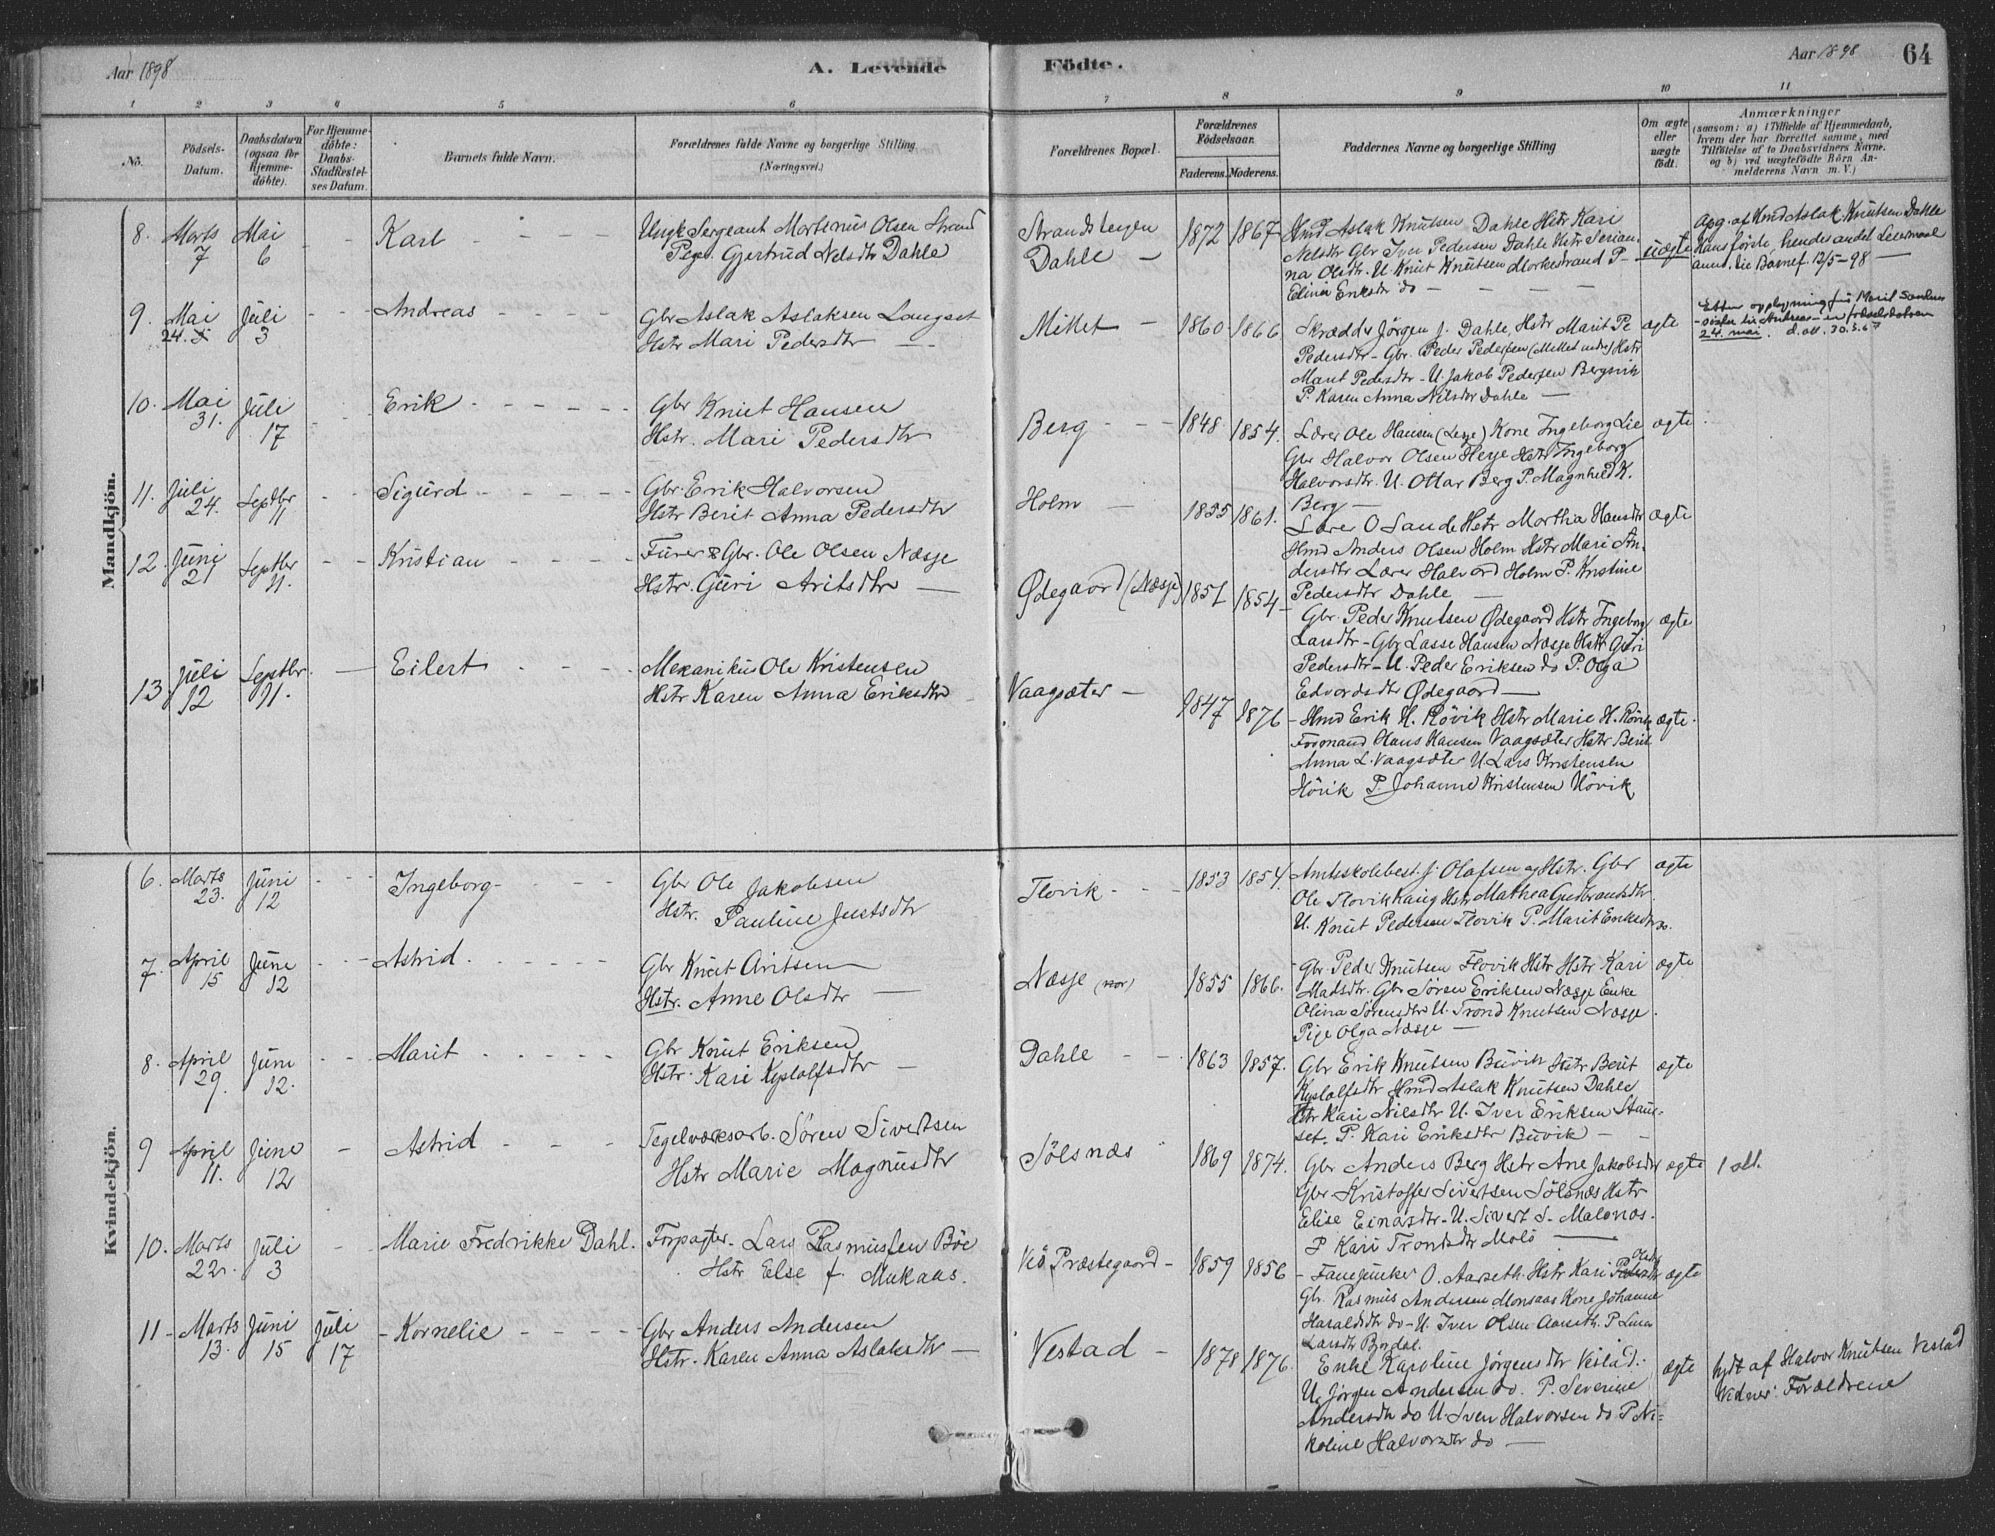 Aar 1898
A. Levende
Födte.
Aar 1898
64
1 2 3 4 5 6 7 8 9 10 11
No.
Födsels-
Datum.
Daabsdatum
(ogsaa for
Hjemme-
döbte).
For Hjemme-
döbte:
Daabs-
Stadfæstel-
ses Datum.
Barnets fulde Navn.
Forældrenes fulde Navne og borgerlige Stilling
(Næringsvei.)
Forældrenes Bopæl.
Forældrenes
Födselsaar.
Faderens.
Moderens.
Faddernes Navne og borgerlige Stilling
Om ægte
eller
uægte
födt.
Anmærkninger
(saasom: a) i Tilfælde af Hjemmedaab,
hvem der har forrettet samme, med
Tilföielse af to Daabsvidners Navne.
og b) ved uægtefödte Börn An-
melderens Navn m. V.)
Mandkjön.
8. Marts 7 Mai 6 Karl
Ungk Sergeant Martinius Olsen Strand
Pige Gjertrud Nelsdtr Dahle
Dahle
1872 1867
Hmd Aslak Knutsen Dahle Hstr Kari
Nelsdtr Gbr Iver Pedersen Dahle Hstr Serian-
na Olsdtr. U. Knut Knutsen Morkestrand P
Elina Eriksdtr do
uægte
Opg. af Hmd Aslak Knutsen Dahle
Hans første hendes andet Leiermaal
anm. til Barnef. 12/5-98
9. Mai 24 Juli 3 Andreas
Gbr Aslak Aslaksen Langset
Hstr Mari Pedersdtr
Mittet
1860 1866
Skrædder Jørgen J. Dahle, Hstr Marit Pe
Pedersdtr - Gbr. Peder Pedersen (Mittet nedre) Hstr
Marit Pedersdtr - U. Jakob Pedersen Bergsvik
P. Karen Anna Nilsdtr Dahle
ægte
24. mai
10. Mai 31. Juli 17 Erik
Gbr Knut Hansen
Hstr. Mari Pedersdtr
Berg
1848 1854.
Lærer Ole Hansen (Lesje) Kone Ingeborg Lie
Gbr Halvor Olsen Heye Hstr Ingeborg
Halvorsdtr. U. Ottar Berg P. Magnhild K.
Berg
ægte
11. Juli 24. Septbr 11 Sigurd
Gbr. Erik Halvorsen
Hstr Berit Anna Pedersdtr
Holm
1855 1861.
Lærer O Sande Hstr Martha Hansdtr
Hmd Anders Olsen Holm Hstr Mari An-
dersdtr Lærer Halvord Holm P. Kristine
Pedersdtr Dahle
ægte
12. Juni 21 Septbr 11. Kristian
Furer & Gbr. Ole Olsen Næsje
Hstr. Guri Aritsdtr
Ødegaard (Næsje)
1851 1854
Gbr. Peder Knutsen Ødegaard Hstr Ingeborg
Larsdtr - Gbr Lasse Hansen Næsje Hstr Guri
Pedersdtr - U. Peder Eriksen do P. Olga
Edvardsdtr Ødegaard
ægte
13 Juli 12 Septbr. 11. Eilert
Mekanikus Ole Kristensen
Hstr Karen Anna Eriksdtr
Vaagsæter
1847 1876
Hmd Erik H. Røvik Hstr Marie H. Røvik
Formand Hans Hansen Vaagsæter Hstr Berit
Anna L. Vaagsæter U. Lars Kristensen
Hövik P. Johanne Kristensen Hövik
ægte
Kvindekjön.
6. Marts 23. Juni 12 Ingeborg
Gbr Ole Jakobsen
Hstr. Pauline Justsdtr
Flovik
1853 1854.
Amtsskolebest. J. Olafsen og Hstr. Gbr
Ole Flovikhaug Hstr Mathea Gudbrandsdtr
U. Knut Pedersen Flovik P. Marit Eriksdtr do.
ægte
7. April 15 Juni 12 Astrid.
Gbr Knut Aritsen
Hstr. Anne Olsdtr
Næsje (nor)
1855 1866.
Gbr. Peder Knutsen Flovik Hstr Hstr Kari
Madsdtr. Gbr Sören Eriksen Næsje Enke
Olina Sørensdtr U. Trond Knutsen Næsje.
Pige Olga Næsje
ægte
8. April 29. Juni 12. Marit
Gbr Knut Eriksen
Hstr. Kari Kystolfsdtr
Dahle
1863 1857.
Gbr Erik Knutsen Buvik Hstr Berit
Kystolfsdtr Hmd Aslak Knutsen Dahle
Hstr Kari Nilsdtr U. Iver Eriksen
set. P. Kari Eriksdtr Buvik
ægte
9 April 11. Juni 12 Astrid
Tegelværksarb. Sören Sivertsen
Hstr Marie Magnusdtr
Sölsnæs
1869 1874.
Gbr Anders Berg Hstr Ane Jakobsdtr
Gbr Kristoffer Sivertsen Sölsnæs Hstr
Elise Einarsdtr - U. Sivert S. Malonæs.
P Kari Trondsdtr Molö
ægte
10. Marts 22. Juli 3 Marie Fredrikke Dahl.
Forpagter Lars Rasmussen Böe
Hstr Else f. Mukaas.
Vö Præstegaard
1859 1856
Fanejunker O. Aarseth. Hstr Kari
Gbr. Rasmus Andersen Monsaas Kone Johanne
Haraldsdtr do - U. Iver Olsen Aarseth. P. Lina
Larsdtr
ægte
11 Marts 13. Juni 15 Juli 17 Kornelie
Gbr Anders Andersen
Hstr. Karen Anna Aslaksdtr
Vestad
1878 1876.
Enke Karoline Jørgensdtr Vestad.
U. Jørgen Andersen do. P. Severine
Andersdtr do U. Iver Halvorsen do P. Ni-
koline Halvorsdtr do
ægte
hjdt af Halvor Knutsen Vestad
Vidner: Forældrene